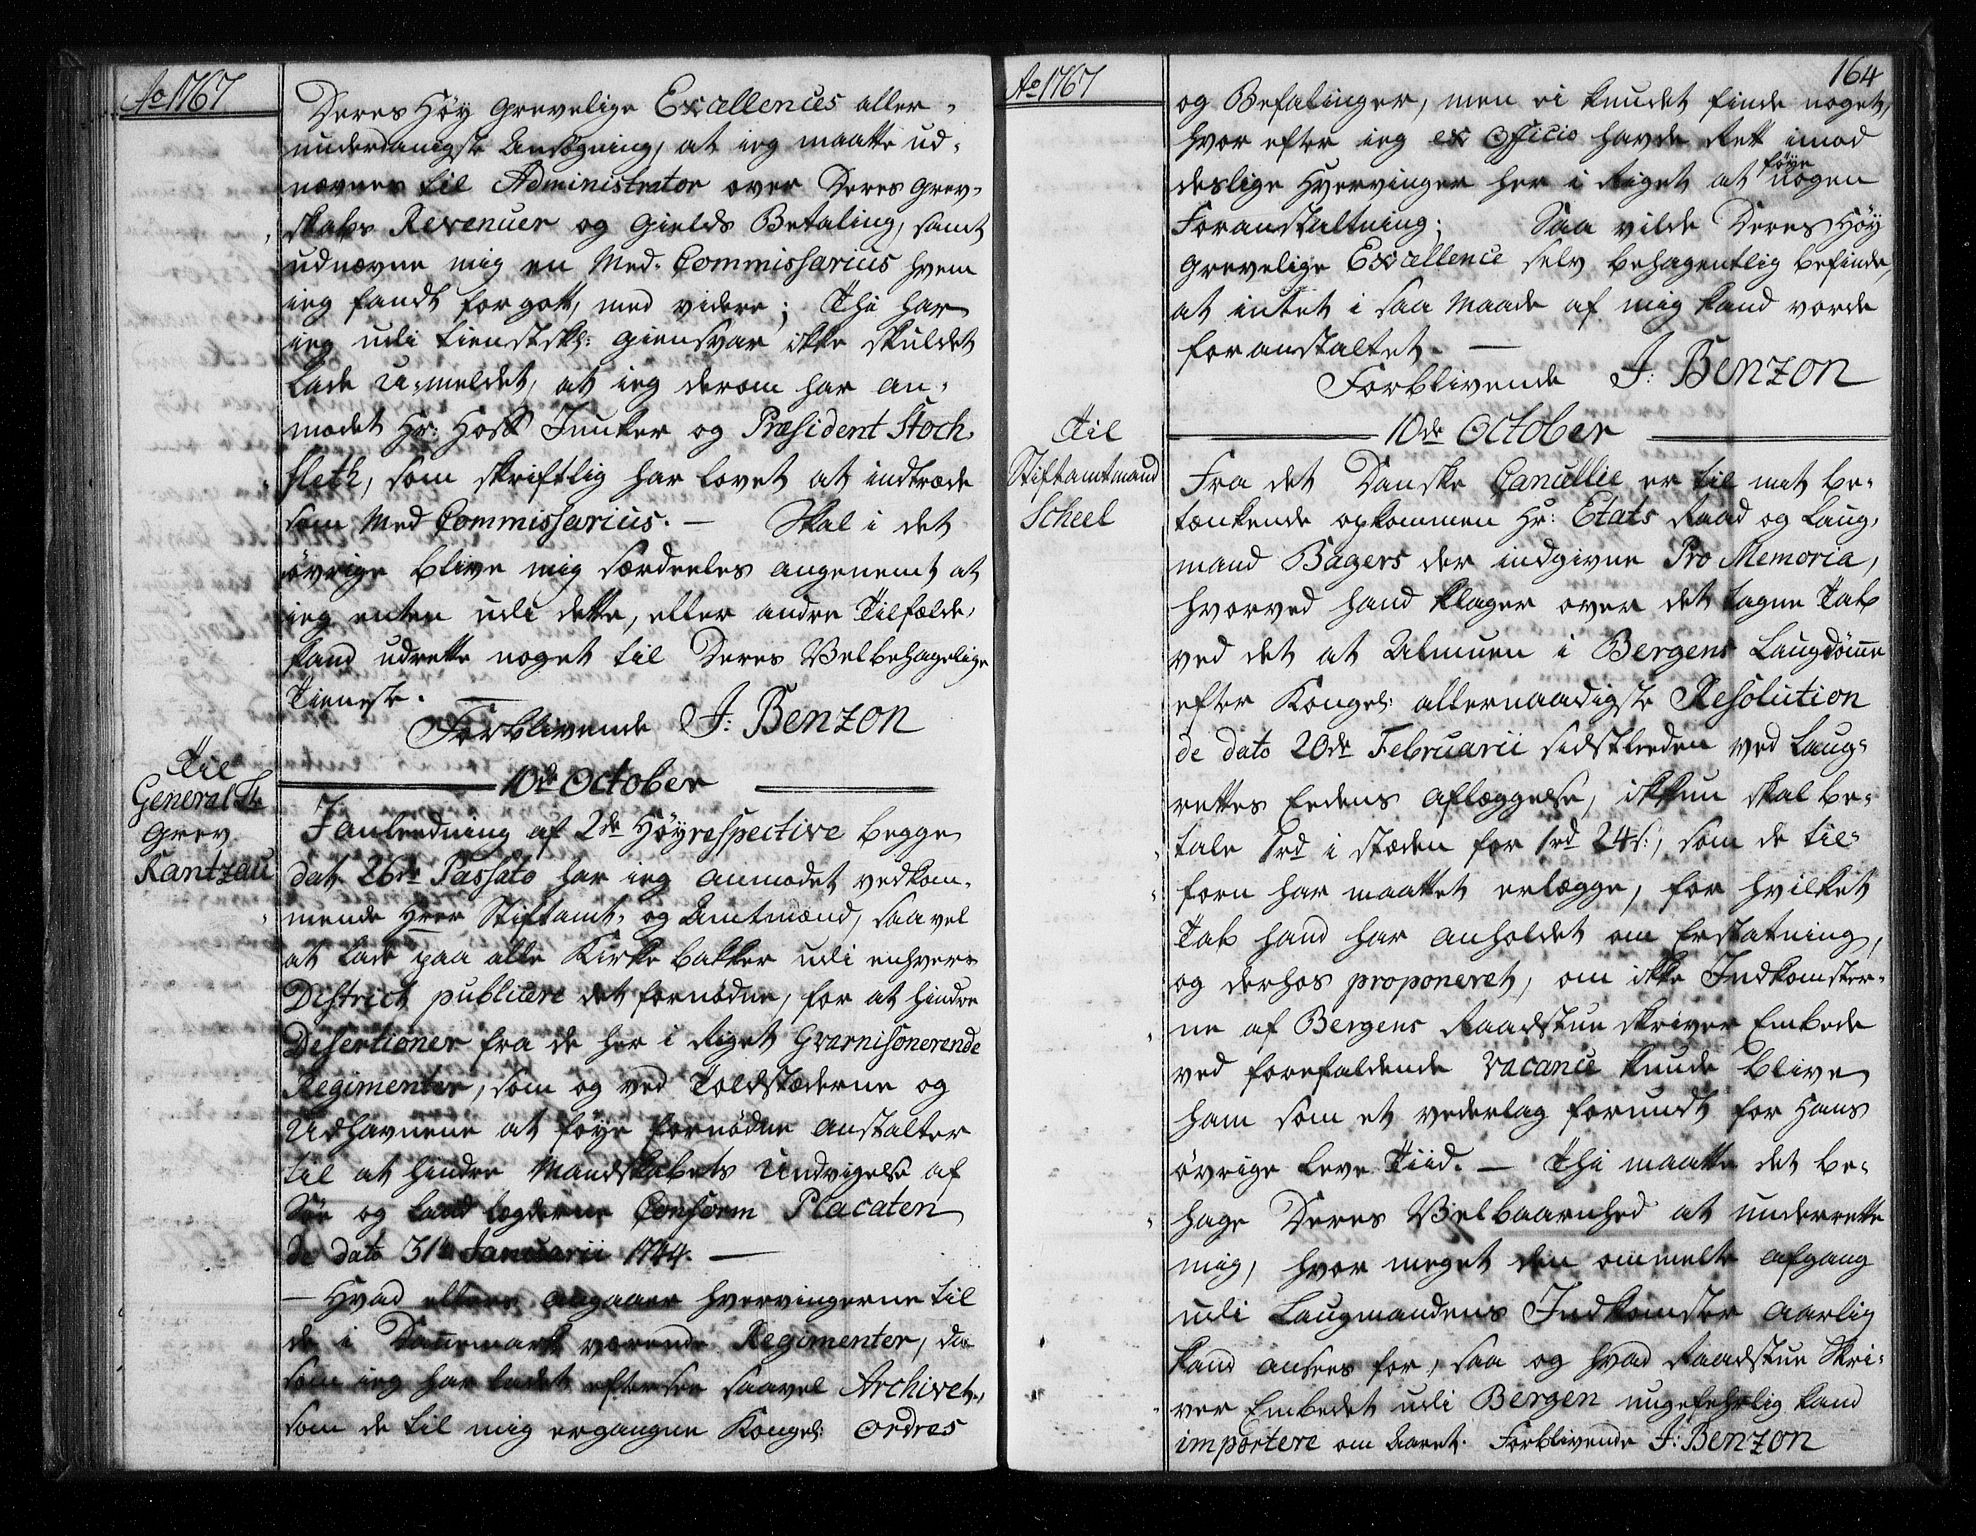 Ao 1767
Deres Høy Grevelige Excellences aller-
underdanigste Ansøgning, at ieg maatte ud-
nævnes til Administrator over Deres Grev-
skabs Revenuer og Gields Betaling, samt
udnævne mig en Med-Commissarius hvem
ieg fandt for gott, med videre; Thi har
ieg udi tienstskl: giensvar ikke skuldet
lade u-meldet, at ieg derom har an-
modet Hr: Hoff Junker og Præsident Stoch-
fleth, som skriftlig har lovet at indtræde
som Med Commissarius. — Skal i det
øvrige blive mig særdeeles angenemt at
ieg enten udi dette, eller andre Tilfælde,
kand udrette noget til Deres Velbehagelige
Tieneste. —
Forblivende J: Benzon
Til
General Lt
Grev
Rantzau
10de October
I anleedning af 2de Høyrespective begge
dat: 26de Passato har ieg anmodet vedkom-
mende Hrer Stiftamt- og Amtmænd, saavel
at lade paa alle Kirke bakker udi enhvers
District publicere det fornødne, for at hindre
Desertioner fra de her i Riget Gvarnisonerende
Regimenter, som og ved Toldstæderne og
Udhavnene at føye fornødne Anstalter
til at hindre Mandskabets Undvigelse af
Søe og Land Lægderne Conform Placaten
de dato 31te Januarii 1744. —
— Hvad ellers angaaer Hvervingerne til
de i Dannemark værende Regimenter, da
som ieg har ladet eftersee saavel Archivet,
som de til mig ergangne Kongel: Ordres
Ao 1767
164
og Befalinger, men ei kundet finde noget,
hvor efter ieg ex Officio havde Rett imod
deslige Hvervinger her i Riget at føye nogen
Foranstaltning; Saa vilde Deres Høy
Grevelige Excellence selv behagentlig befinde,
at intet i saa Maade af mig kand vorde
foranstaltet. —
Forblivende J: Benzon
Til
Stiftamtmand
Scheel
10de October
Fra det Danske Cancellie er til mit be-
tænkende opkommen Hr: Etats Raad og Laug-
mand Bagers der indgivne Pro Memoria,
hvorved hand klager over det tagne Tab
ved det at Almuen i Bergens Laugdømme
efter Kongel: allernaadigste Resolution
de dato 20de Februarii sidstleeden ved Laug-
rettes Eedens aflæggelse, ikkun skal be-
tale 1rd i stæden for 1rd 24s:, som de til-
forn har maattet erlægge, for hvilket
Tab hand har anholdet om Erstatning,
og derhos proponeret, om ikke Indkomster-
ne af Bergens Raadstue skriver Embede
ved forefaldende vacance kunde blive
ham som et vederlag forundt for Hans
øvrige Leve Tiid. — Thi maatte det be-
hage Deres Velbaarnhed at underrette
mig, hvor meget den ommelte afgang
udi Laugmandens Indkomster aarlig
kand ansees for, saa og hvad Raadstue Skri-
ver Embedet udi Bergen ungefehrlig kand
importere om Aaret. Forblivende J: Benzon